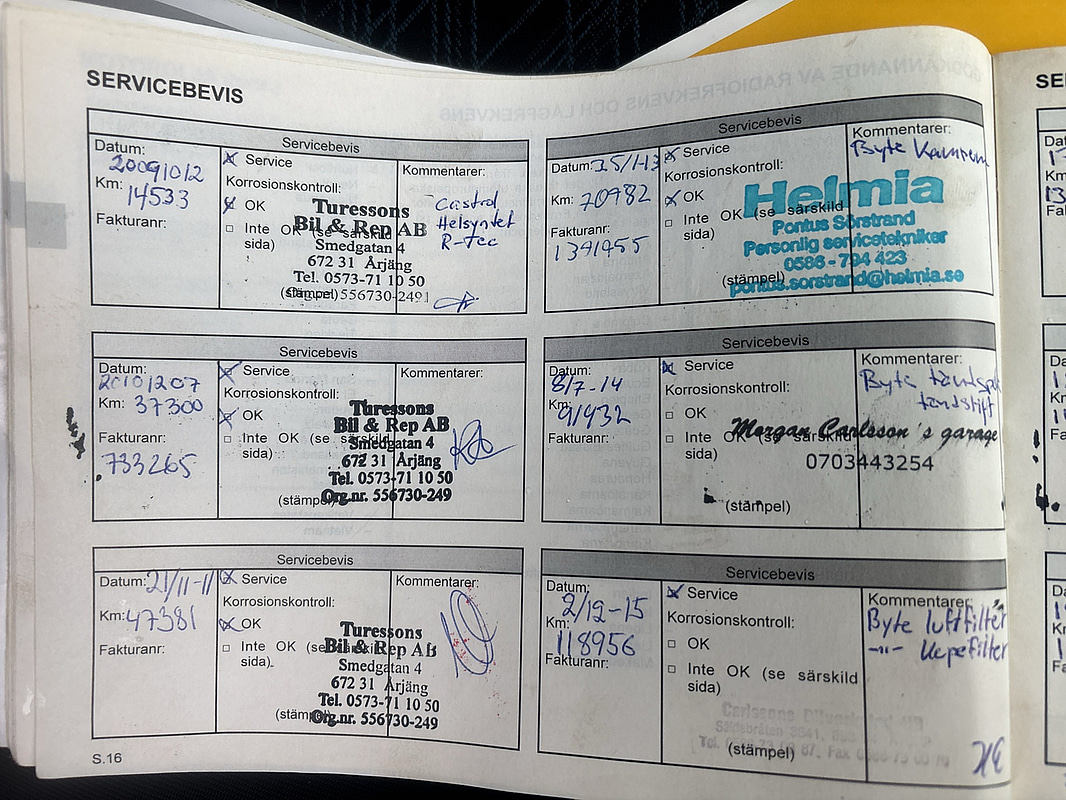 SERVICEBEVIS
Servicebevis
Datum: 20091012
Km: 14533
Fakturanr:
Service
Korrosionskontroll:
OK
Inte OK (se särskild
sida)
(stämpel)
Kommentarer:
Castrol
Helsyntet
R-Tec
Turessons
Bil & Rep AB
Smedgatan 4
672 31 Årjäng
Tel. 0573-71 10 50
556730-2491
Servicebevis
Datum: 25/1-13
Km: 70982
Fakturanr:
1391455
Service
Korrosionskontroll:
OK
Inte OK (se särskild
sida)
(stämpel)
Kommentarer:
Byte Kamrem
Helmia
Pontus Sörstrand
Personlig servicetekniker
0586 - 794 423
pontus.sorstrand@helmia.se
Servicebevis
Datum:
20101207
Km: 37300
Fakturanr:
733265
Service
Korrosionskontroll:
OK
Inte OK (se särskild
sida)
(stämpel)
Kommentarer:
Turessons
Bil & Rep AB
Smedgatan 4
672 31 Årjäng
Tel. 0573-71 10 50
Org.nr. 556730-249
Servicebevis
Datum:
8/7-14
Km:
91432
Fakturanr:
Service
Korrosionskontroll:
OK
Inte OK (se särskild
sida)
(stämpel)
Kommentarer:
Byte
tändstift
Morgan Carlsson's garage
0703443254
Servicebevis
Datum: 21/11-11
Km: 47381
Fakturanr:
Service
Korrosionskontroll:
OK
Inte OK (se särskild
sida).
(stämpel)
Kommentarer:
Turessons
Bil & Rep AB
Smedgatan 4
672 31 Årjäng
Tel. 0573-71 10 50
Org.nr. 556730-249
Servicebevis
Datum:
2/12-15
Km:
118956
Fakturanr:
Service
Korrosionskontroll:
OK
Inte OK (se särskild
sida)
(stämpel)
Kommentarer:
Byte luftfilter
-"- Kupefilter
S.16
SE